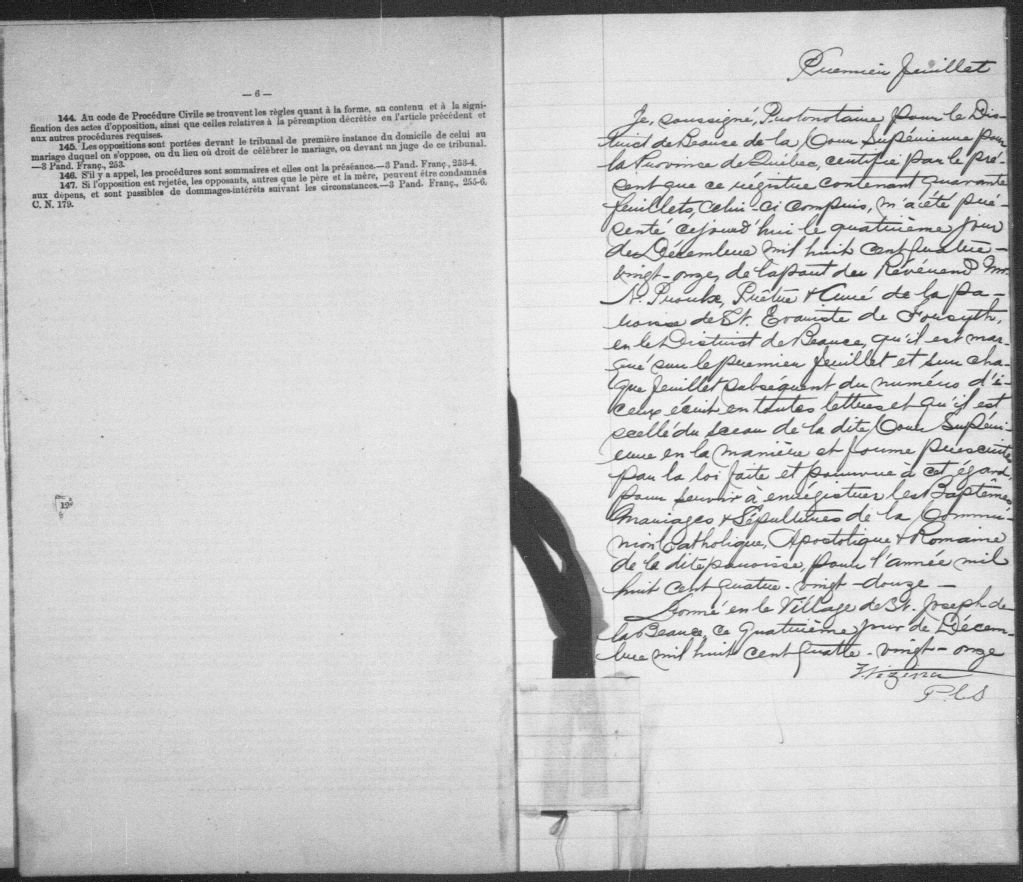 — 6 —
144. Au code de Procédure Civile se trouvent les règles quant à la forme, au contenu et à la signi-
fication des actes d'opposition, ainsi que celles relatives à la péremption décrétée en l'article précédent et
aux autres procédures requises.
145. Les oppositions sont portées devant le tribunal de première instance du domicile de celui au
mariage duquel on s'oppose, ou du lieu où droit de célébrer le mariage, ou devant un juge de ce tribunal.
—3 Pand. Franç., 253.
146. S'il y a appel, les procédures sont sommaires et elles ont la préséance.—3 Pand. Franç., 253-4.
147. Si l'opposition est rejetée, les opposants, autres que le père et la mère, peuvent être condamnés
aux dépens, et sont passibles de dommages-intérêts suivant les circonstances.—3 Pand. Franç., 255-6.
C. N. 179.
Premier feuillet
Je, soussigné, Protonotaire pour le Dis-
trict de Beauce de la Cour Supérieure pour
la Province de Québec, certifie par le pré-
sent que ce régistre contenant quarante
feuillets, celui-ci compris, m'a été pré-
senté cejourd'hui le quatrième jour
de Décembre mil huit cent quatre-
vingt-onze, de la part du Révérend Mr
N. Proulx, Prêtre & Curé de la pa-
roisse de St. Evariste de Forsyth,
en le District de Beauce, qu'il est mar-
qué sur le premier feuillet et sur cha-
que feuillet subséquent du numéro d'i-
ceux écrit en toutes lettres et qu'il est
scellé du sceau de la dite Cour Supéri-
eure en la manière et forme prescrite
par la loi faite et pourvue à cet égard,
pour servir à enrégistrer les Baptêmes
Mariages & Sépultures de la Commu-
nion Catholique, Apostolique & Romaine
de la dite paroisse, pour l'année mil
huit cent quatre-vingt-douze —
Donné en le Village de St. Joseph de
la Beauce, ce Quatrième jour de Décem-
bre mil huit cent quatre-vingt-onze
Vézina
P.C.S